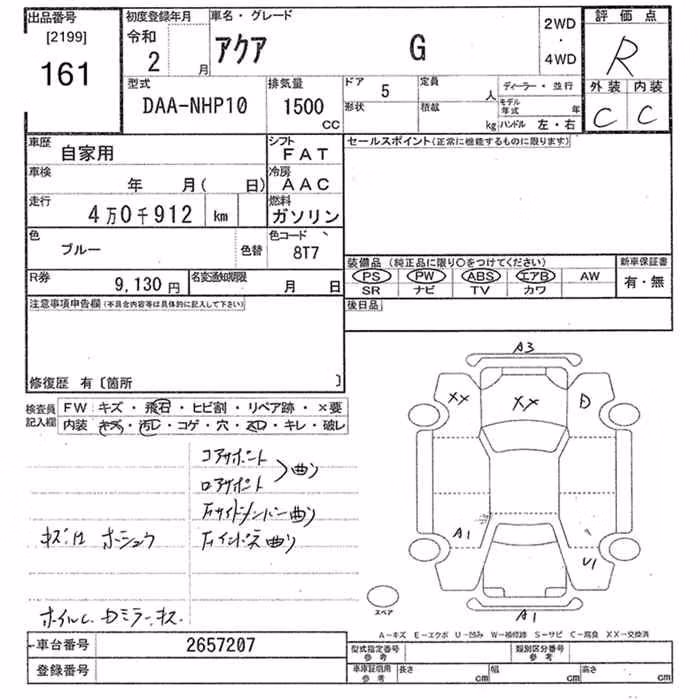 出品番号
[2199]
161
初度登録年月
令和
2
月
車名・グレード
アクア G
2WD
・
4WD
評価点
R
外装 内装
C C
型式
DAA-NHP10
排気量
1500
CC
ドア 5
形状
定員
人
積載
kg
ディーラー・並行
モデル年式 年
ハンドル 左・右
車歴
自家用
シフト
FAT
車検
年 月( 日)
冷房
AAC
走行
4万0千912 km
燃料
ガソリン
色
ブルー
色替
色コード
8T7
R券
9,130円
名変通知期限
月 日
セールスポイント(正常に機能するものに限ります)
装備品(純正品に限り○をつけてください)
PS PW ABS エアB AW
SR ナビ TV カワ
新車保証書
有・無
後日品
注意事項申告欄(不具合内容等は具体的に記入して下さい)
修復歴 有〔箇所 〕
検査員
記入欄
FW キズ・飛石・ヒビ割・リペア跡・×要
内装 キズ・汚レ・コゲ・穴・スレ・キレ・破レ
コアサポート
ロアサポート
曲り
Fサイドメンバー曲り
Fインパネ曲り
ホイルC.
A3
XX
XX
D
A1
U1
A1
スペア
A-キズ E-エクボ U-凹み W-補修跡 S-サビ C-腐食 XX-交換済
車台番号
2657207
登録番号
型式指定番号
参考
類別区分番号
参考
車庫証明用
参考
長さ
cm
幅
cm
高さ
cm